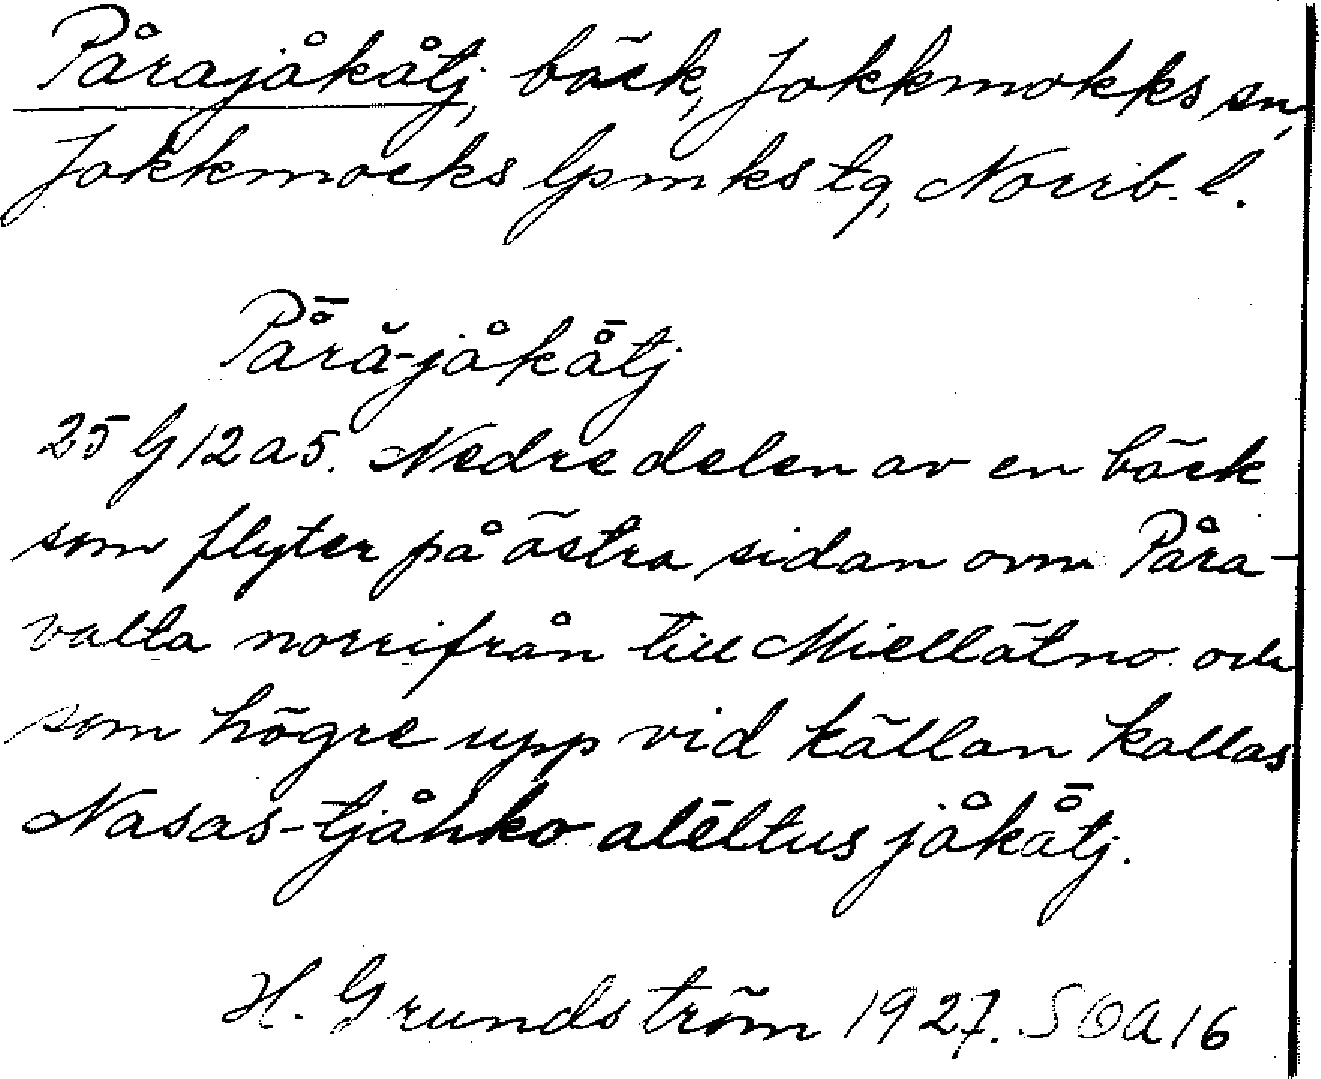 Pårajåkåtj, bäck, Jokkmokks sn,
Jokkmocks lpmks tg, Norrb. l.
På̄ră-jåkå̄tj
25 G 12 a 5. Nedre delen av en bäck
som flyter på östra sidan om Påra-
valta norrifrån till Miellätno och
som högre upp vid källan kallas
Nasas-tjåhko alēltus jåkå̄tj.
H. Grundström 1927. SOA 16